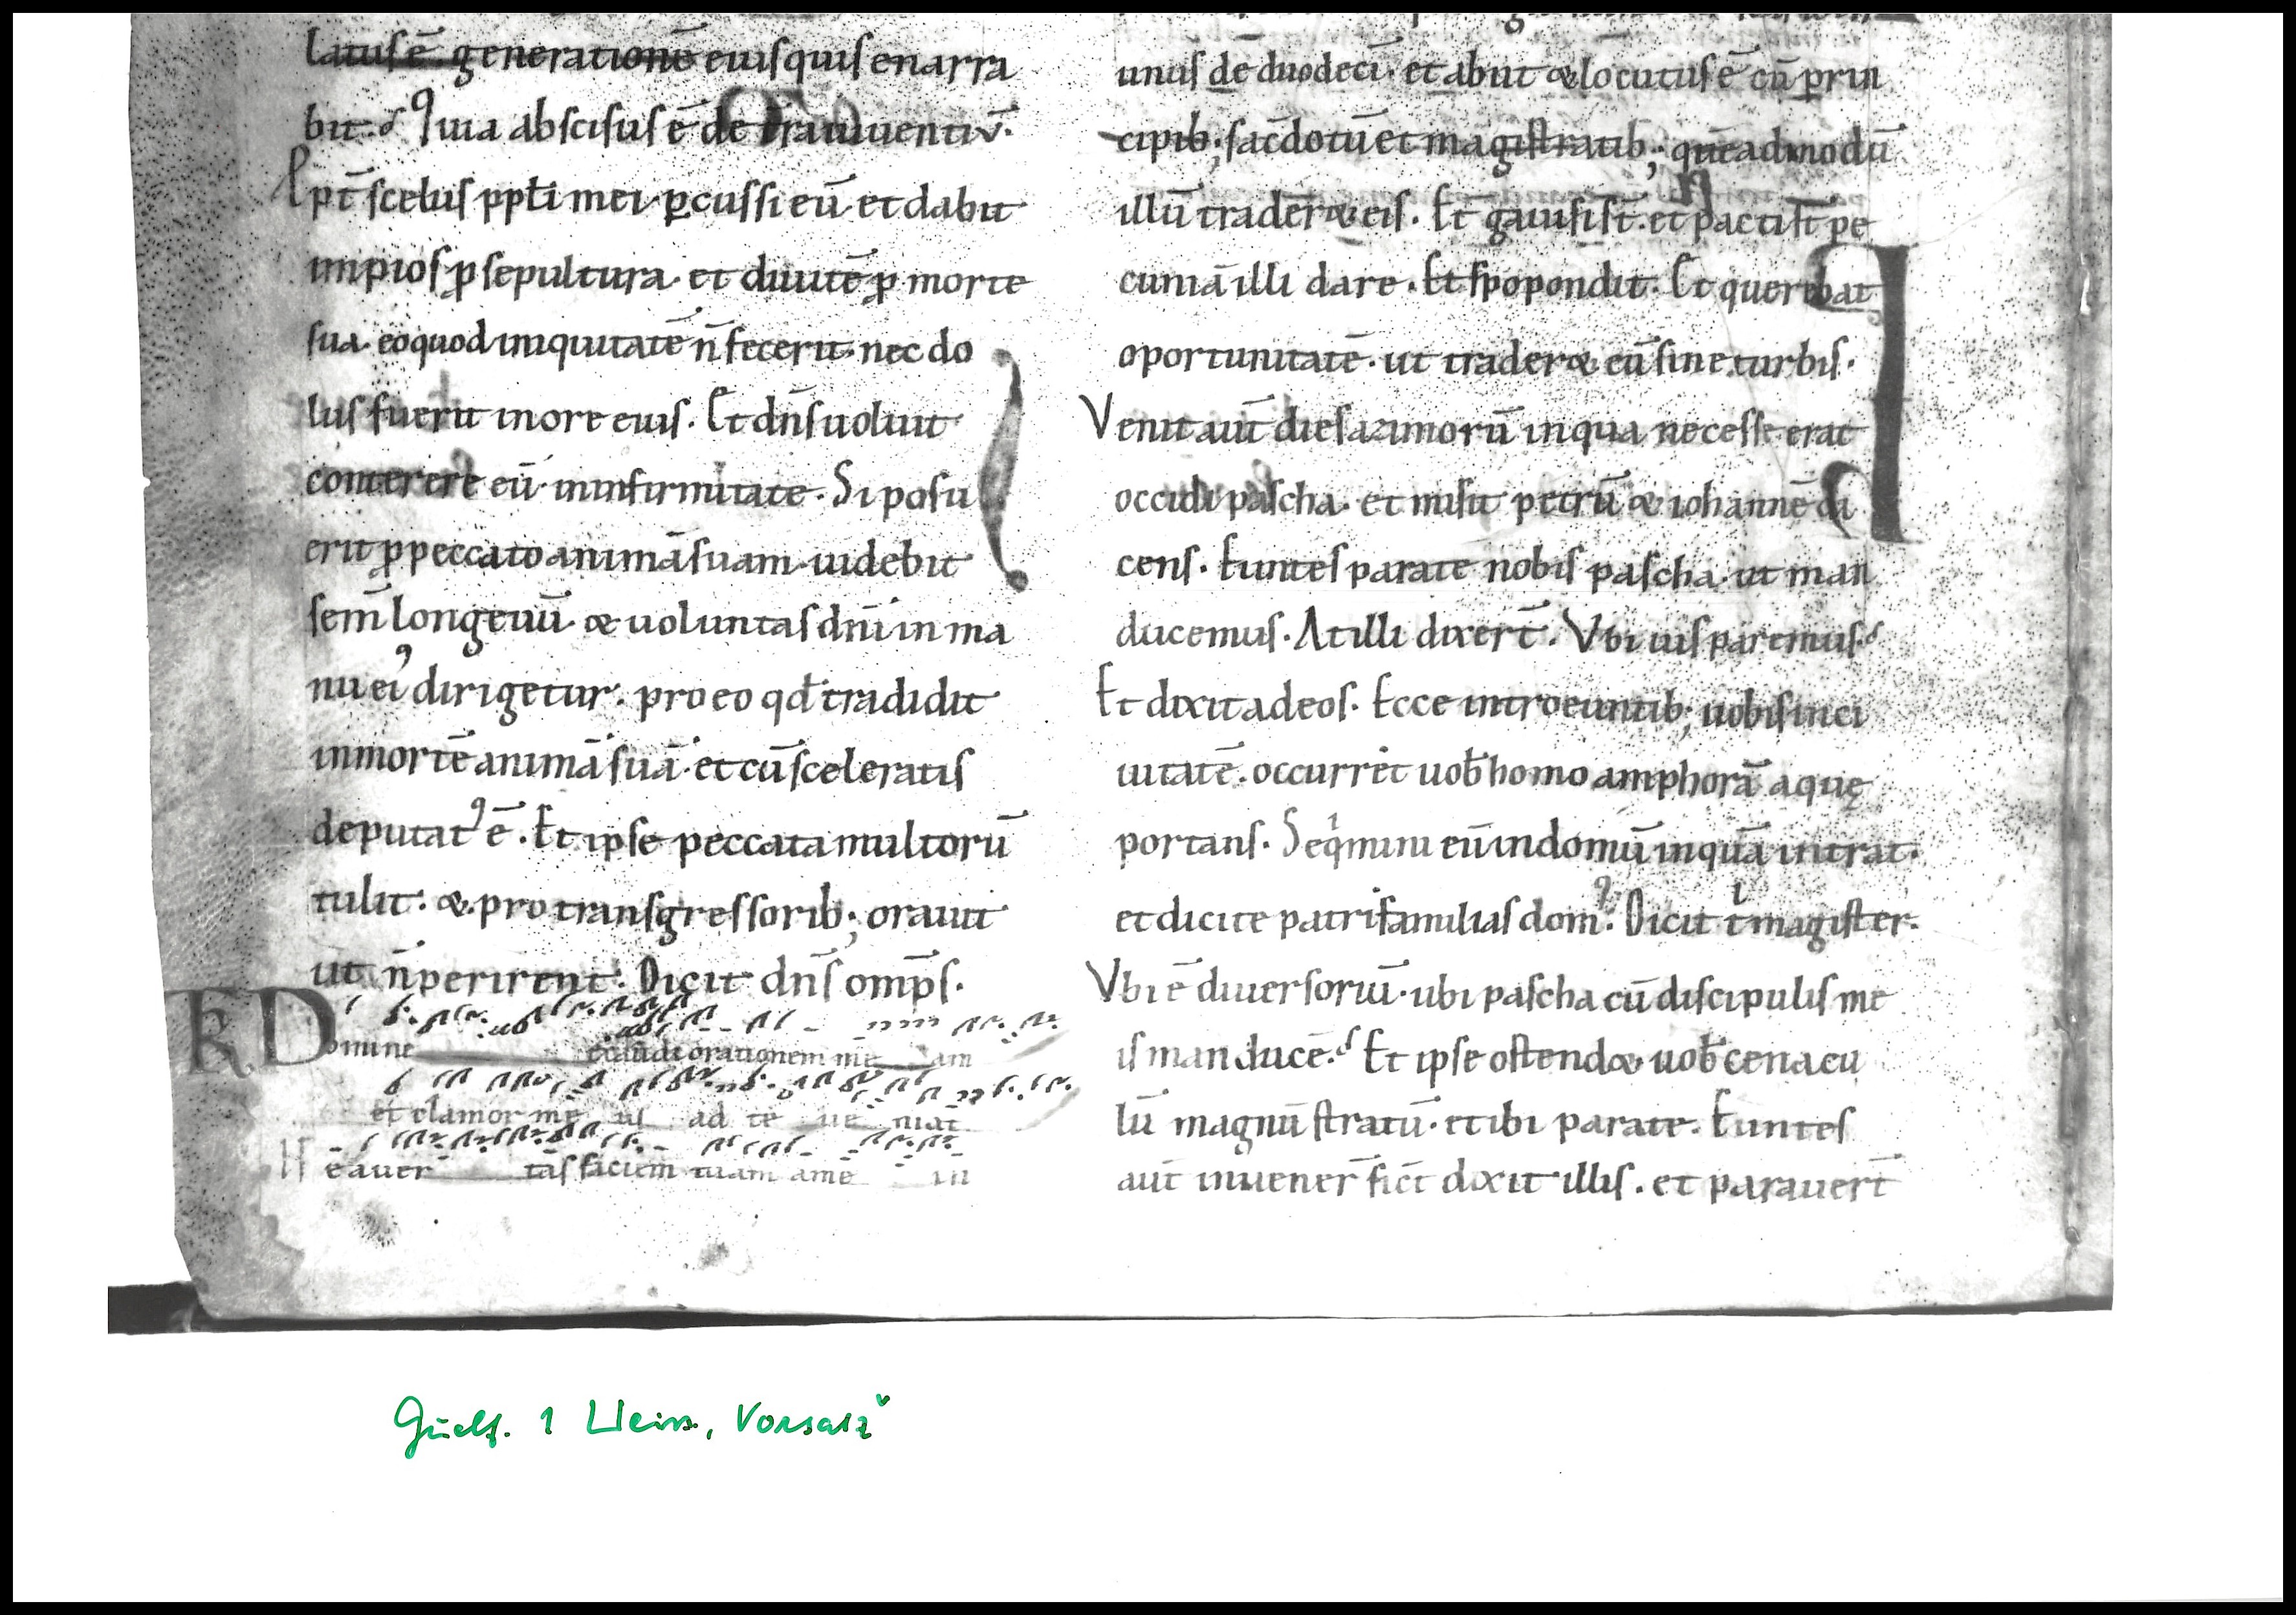 latus ē. generationē eius quis enarra
bit. Quia abscisus ē de tra uiuentiū.
Ppt̄ scelus ppl̄i mei. ꝑcussi eū. et dabit
impios ꝓ sepultura. et diuitē ꝓ morte
sua. eo quod iniquitatē n̄ fecerit. nec do
lus fuerit in ore eius. Et dn̄s uoluit
conterere eū. in infirmitate. Si posu
erit ꝓ peccato animā suam. uidebit
sem̄ longeuū. & uoluntas dn̄i in ma
nu eiꝰ dirigetur. pro eo qd̄ tradidit
in mortē animā suā. et cū sceleratis
deputatꝰ ē. Et ipse peccata multorū
tulit. & pro transgressorib; orauit
ut n̄ perirent. Dicit dn̄s omp̄s.
TR Domine exaudi orationem me am
et clamor me us ad te ue niat
Ne auer tas faciem tuam a me
unus de duodecī. et abiit & locutus ē cū prin
cipib; sac̄dotū et magistratib; quēadmodū
illū trader& eis. Et gauisi st̄. et pacti st̄ pe
cuniā illi dare. Et spopondit. Et querebat
oportunitatē. ut trader& eū sine turbis.
Venit aut̄ dies azimorū in qua necesse erat
occidi pascha. et misit petrū & iohannē di
cens. Euntes parate nobis pascha. ut man
ducemus. At illi dixert̄. Vbi uis paremus.
Et dixit ad eos. Ecce introeuntib; uobis in ci
uitatē. occurret uob̄ homo amphorā aquę
portans. Seqimini eū in domū in quā intrat.
et dicite patrifamilias domꝰ. Dicit tⁱ magister.
Vbi ē diuersoriū. ubi pascha cū discipulis me
is manducē. Et ipse ostend& uob̄ cenacu
lū magnū stratū. et ibi parate. Euntes
aut̄ inuener̄ sic̄t dixit illis. et parauert̄
Guelf. 1 Weiss., Vorsatz